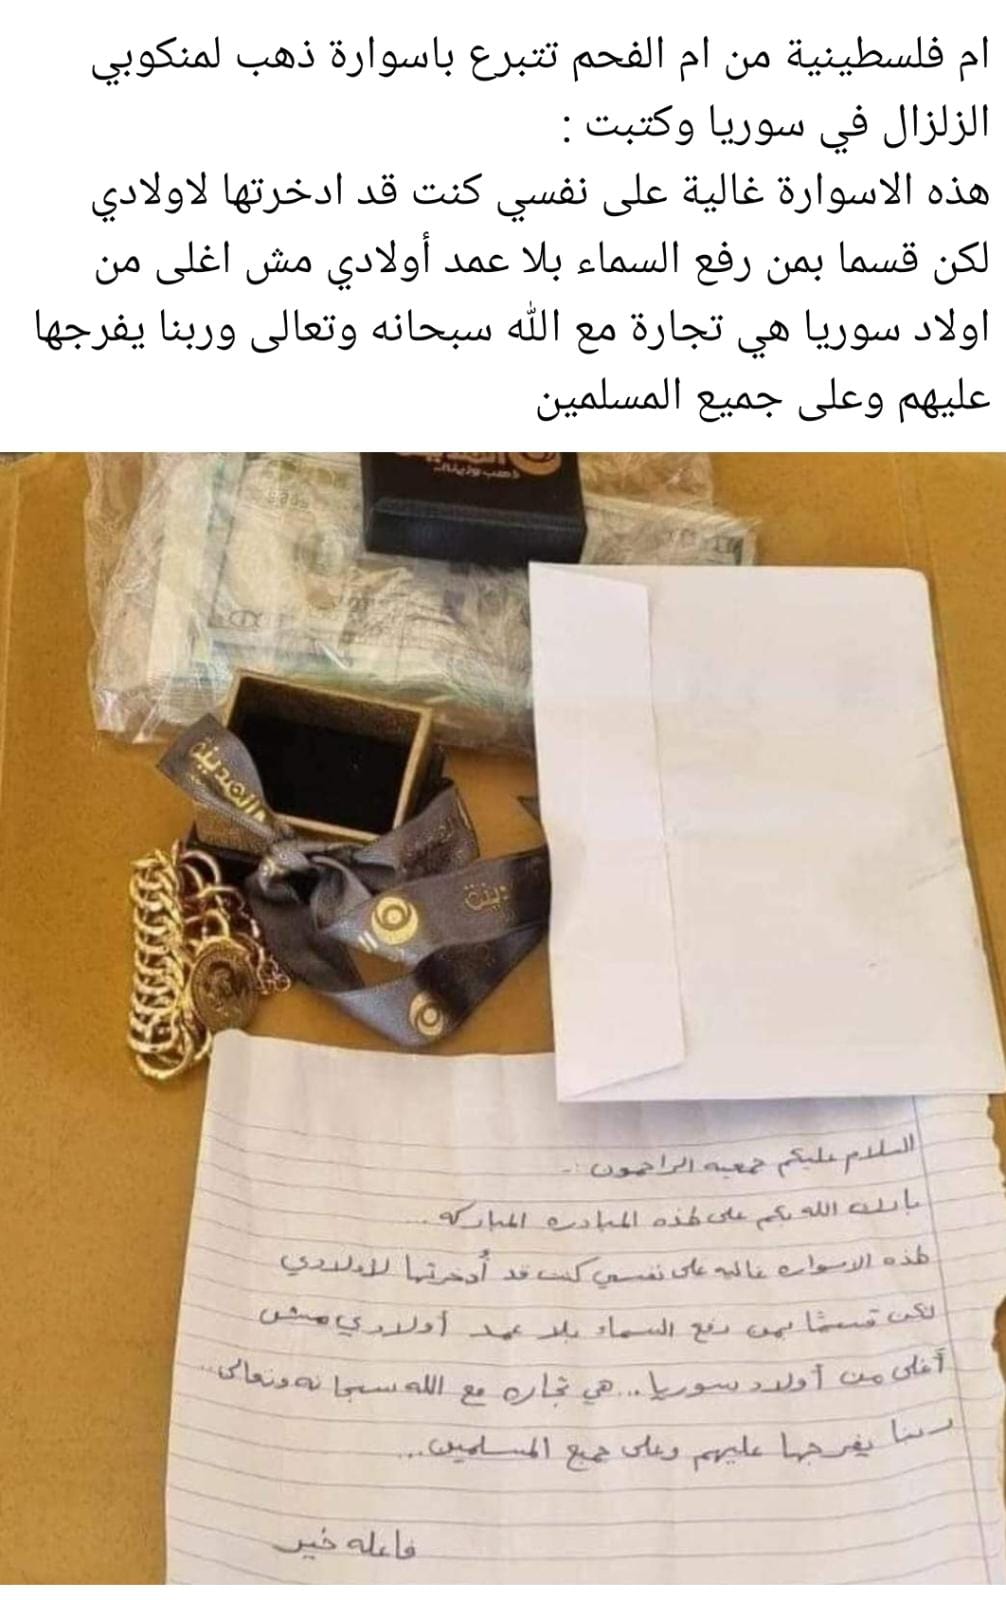 ام فلسطينية من ام الفحم تتبرع باسوارة ذهب لمنكوبي
الزلزال في سوريا وكتبت :
هذه الاسوارة غالية على نفسي كنت قد ادخرتها لاولادي
لكن قسما بمن رفع السماء بلا عمد أولادي مش اغلى من
اولاد سوريا هي تجارة مع الله سبحانه وتعالى وربنا يفرجها
عليهم وعلى جميع المسلمين
ذهب وزينة
المدينة
السلام عليكم جمعيه الراحمون :-
بارك الله بكم على هذه المبادره المباركه...
هذه الاسواره غاليه على نفسي كنت قد أدخرتها لاولادي
لكن قسمًا بمن رفع السماء بلا عمد أولادي مش
أغلى من أولاد سوريا... هي تجاره مع الله سبحانه وتعالى..
ربنا يفرجها عليهم وعلى جميع المسلمين...
فاعله خير